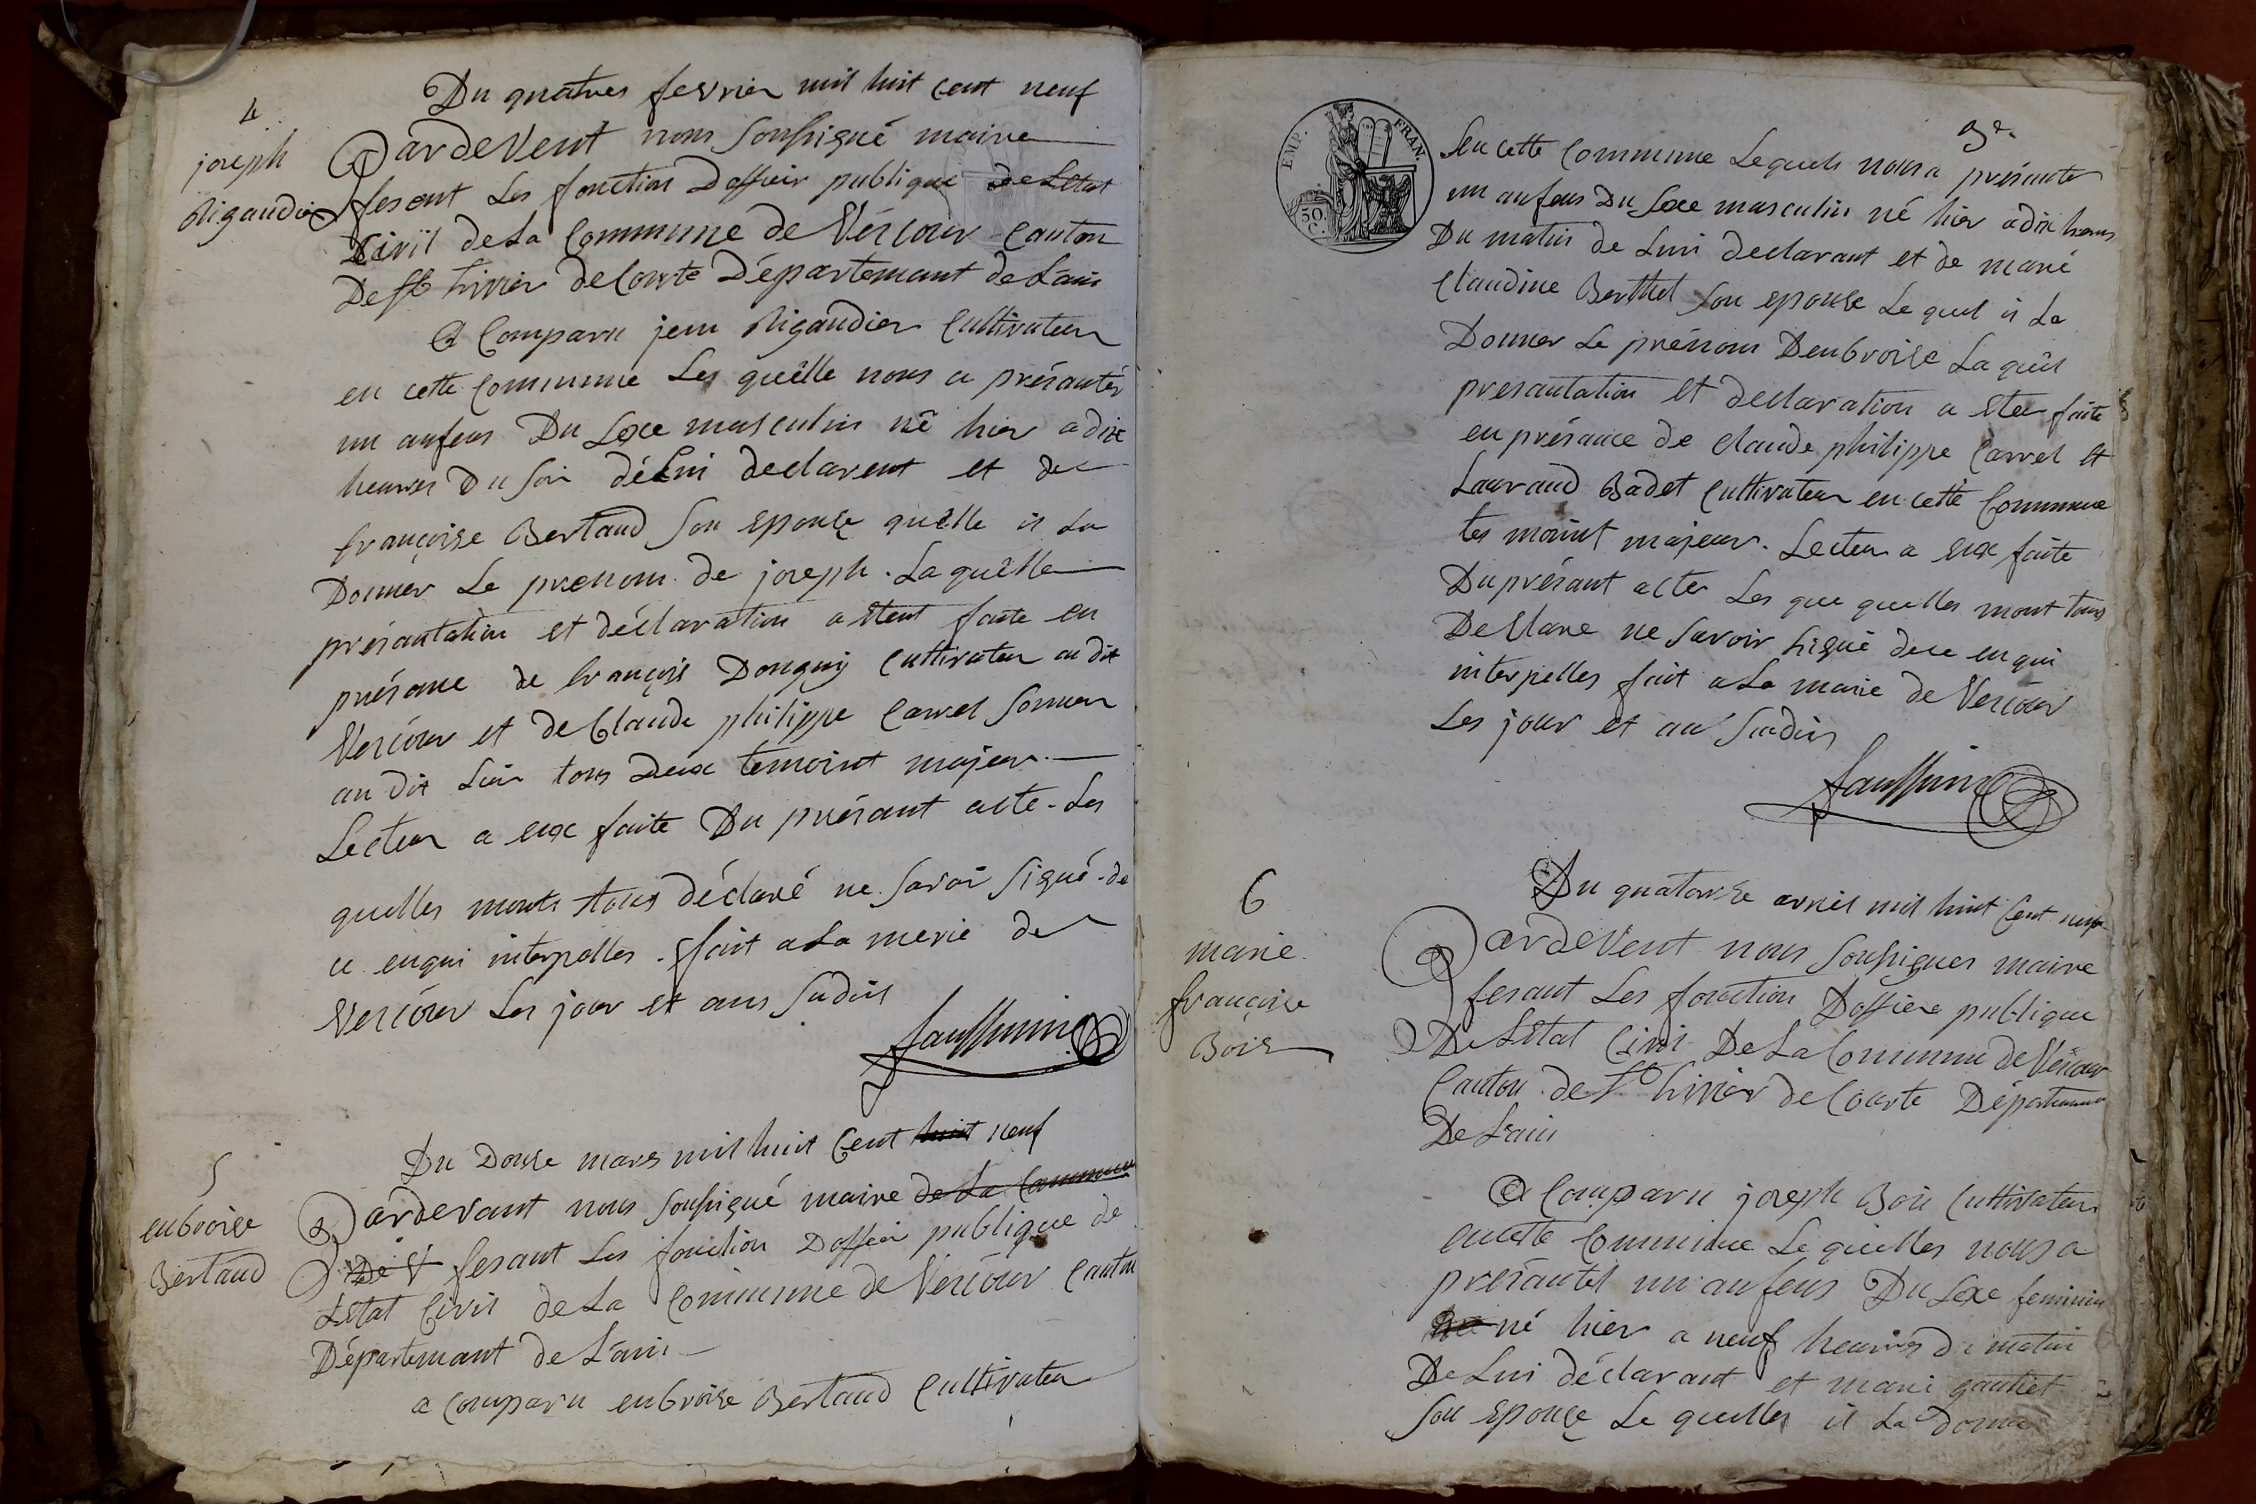 4
joseph
Rigaudier
Du quatres fevrier mil huit cent neuf
Pardevent nous soussigné maire
fesent les fonction Doffisir publique de Letat
Civil de La Commune de Vescour Canton
De st trivier de Courte Département de Lain
a Comparu jean Rigaudier Cultivateur
en cette Commune Les quêlle nous a présantér
un anfens Du Sexe masculin né hier a dix
heures Du soir de Lui declarent et de
françoise Bertaud son epouse quêlle il La
Donner Le prenom de joseph. La quêlle
présantation et déclaration a etent faite en
présance de françois Donguy Cultivateur au dit
Vescour et de Claude philippe Carrel
au dit Lui tous Deux temoint majeur
Lecteur a eux faite Du présant acte. Les
quelles monts tous déclaré ne savoir signé. de
ce enqui interpelles. fait a La merie de
Vescour Les jour et ans sudis
5
enbroise
Bertaud
Du Douse mars mil huit Cent huit neuf
Pardevant nous soussigné maire de La Commune
De V fesant Les fonction Doffisir publique de
Letat Civil de La Commune de Vescour Canton
Département de Lain
a Comparu enbroise Bertaud Cultivateur
EMP. FRAN.
50 C.
3e.
en cette Commune Lequels nous a présanter
un anfens Du Sexe masculin né hier a dix heures
Du matin de Lui declarant et de marie
Claudine Berthet son epouse Le quel il La
Donner Le prénom Denbroise La quêl
presantation et declaration a etee faite
en présance de Claude philippe Carrel et
Laurand Badet Cultivateur en cette Commune
tes moint majeur. Lecteur a eux faite
Du présant acter Les que quelles mont tous
Declare ne savoir signé de ce enqui
interpelles fait a La marie de Vescour
Les jour et an sudis
6
marie
françoise
Bois
Du quatorse avril mil huit Cent neuf
Pardevent nous soussignes maire
fesant Les fonction Doffisier publique
De Letat Civil De La Commune de Vescour
Canton de st trivier de Courte Département
De Lain
a Comparu joseph Bois Cultivateur
encette Commune Le quelles nous a
présantet un anfens Du Sexe feminin
né hier a neuf heures Du matin
De Lui déclarant et marie
son epouse Le quelles il La donner